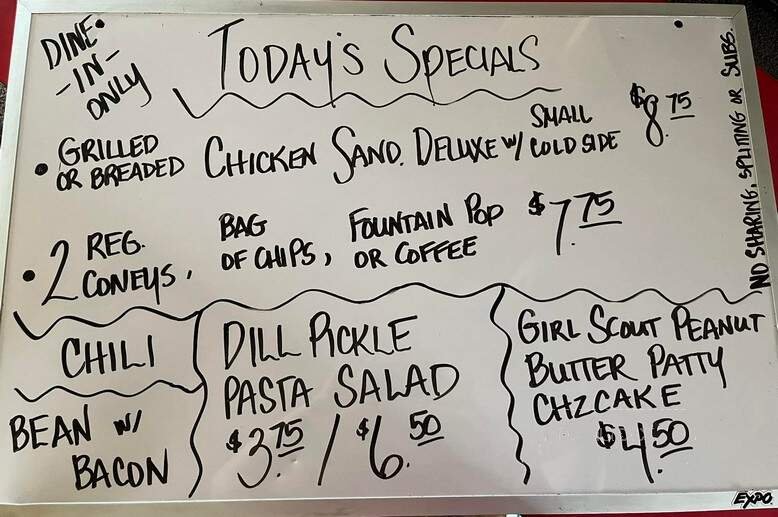 DINE
-IN-
ONLY
TODAY'S SPECIALS
• GRILLED
OR BREADED CHICKEN SAND. DELUXE W/ SMALL
COLD SIDE $8.75
• 2 REG.
CONEYS, BAG
OF CHIPS, FOUNTAIN POP
OR COFFEE $7.75
NO SHARING, SPLITING OR SUBS.
CHILI
BEAN W/
BACON
DILL PICKLE
PASTA SALAD
$3.75 / $6.50
GIRL SCOUT PEANUT
BUTTER PATTY
CHZCAKE
$4.50
EXPO